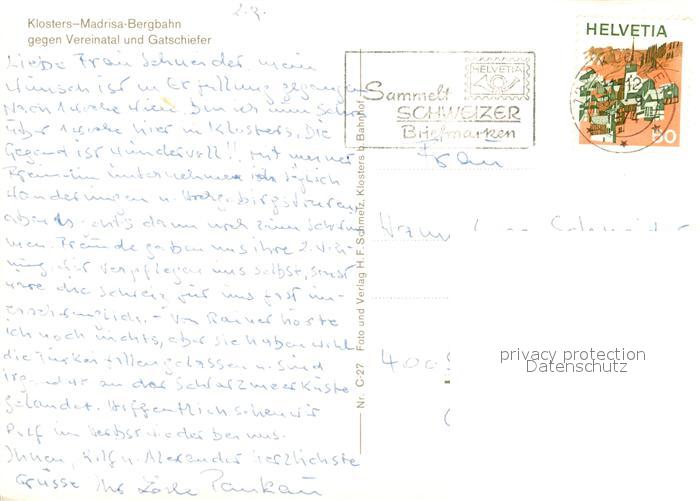 2.8.
Klosters–Madrisa-Bergbahn
gegen Vereinatal und Gatschiefer
Liebe Frau Schneider mein
Wunsch ist in Erfüllung gegangen
Nach 1 Woche Wien bin ich nun schon
über 1 Woche hier in Klosters. Die
Gegend ist wundervoll!! mit meiner
Freundin unternehmen ich täglich
Wanderungen u. Hochgebirgstouren
abends gehts dann noch zum Schwim
men. Freunde gaben uns ihre 2. Woh-
nung, wir verpflegen uns selbst, sonst
wäre die Schweiz für uns fast un-
erschwinglich. – Von Rainer hörte
ich noch nichts, aber sie haben wohl
die Türkei fallengelassen u. sind
irgendwo an der Schwarzmeerküste
gelandet. Hoffentlich sehen wir
Rolf im Herbst wieder bei uns.
Ihnen, Rolf u. Alexander herzlichste
Grüsse Ihre Pankau
Nr. C-27 Foto und Verlag H. F. Schmelz, Klosters b. Bahnhof
HELVETIA
Sammelt
SCHWEIZER
Briefmarken
HELVETIA
12
50
Frau
400
privacy protection
Datenschutz